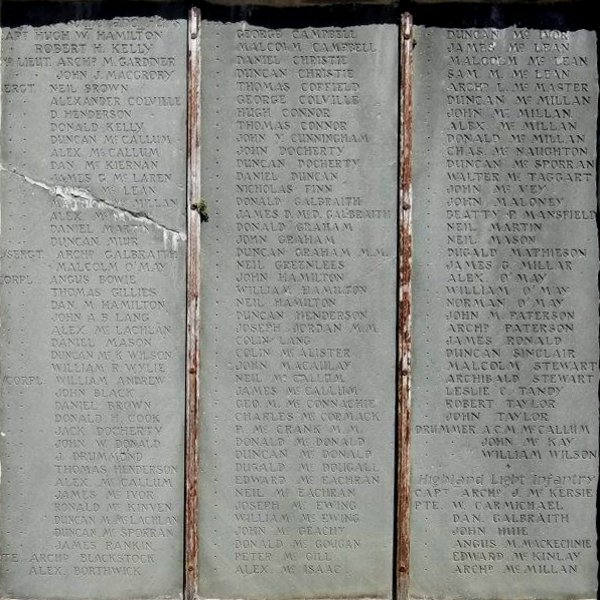 CAPT HUGH W. HAMILTON
ROBERT H. KELLY
LIEUT. ARCHD M. GARDNER
JOHN J. MACGRORY
SERGT NEIL BROWN
ALEXANDER COLVILLE
D. HENDERSON
DONALD KELLY
DUNCAN McCALLUM
ALEX. McCALLUM
DAN. McKIERNAN
JAMES G. McLAREN
McLEAN
McMILLAN
ALEX.
DANIEL MARTIN
DUNCAN MUIR
SERGT ARCHD GALBRAITH
MALCOLM O'MAY
CORPL ANGUS BOWIE
THOMAS GILLIES
DAN. M. HAMILTON
JOHN A.B. LANG
ALEX. McLACHLAN
DANIEL MASON
DUNCAN McK. WILSON
WILLIAM R. WYLIE
CORPL WILLIAM ANDREW
JOHN BLACK
DANIEL BROWN
DONALD H. COOK
JACK DOCHERTY
JOHN W. DONALD
J. DRUMMOND
THOMAS HENDERSON
ALEX. McCALLUM
JAMES McIVOR
RONALD McKINVEN
DUNCAN M. McLACHLAN
DUNCAN McSPORRAN
JAMES RANKIN
PTE ARCHD BLACKSTOCK
ALEX. BORTHWICK
GEORGE CAMPBELL
MALCOLM CAMPBELL
DANIEL CHRISTIE
DUNCAN CHRISTIE
THOMAS COFFIELD
GEORGE COLVILLE
HUGH CONNOR
THOMAS CONNOR
JOHN Y. CUNNINGHAM
JOHN DOCHERTY
DUNCAN DOCHERTY
DANIEL DUNCAN
NICHOLAS FINN
DONALD GALBRAITH
JAMES D. McD. GALBRAITH
DONALD GRAHAM
JOHN GRAHAM
DUNCAN GRAHAM M.M.
NEIL GREENLEES
JOHN HAMILTON
WILLIAM HAMILTON
NEIL HAMILTON
DUNCAN HENDERSON
JOSEPH JORDAN M.M.
COLIN LANG
COLIN McALISTER
JOHN MACAULAY
NEIL McCALLUM
JAMES McCALLUM
GEO. M. McCONNACHIE
CHARLES McCORMACK
P. McCRANK M.M.
DONALD McDONALD
DUNCAN McDONALD
DUGALD McDOUGALL
EDWARD McEACHRAN
NEIL McEACHRAN
JOSEPH McEWING
WILLIAM McEWING
JOHN McGEACHY
DONALD McGOUGAN
PETER McGILL
ALEX. McISAAC
DUNCAN McIVOR
JAMES McLEAN
MALCOLM McLEAN
SAM. M. McLEAN
ARCHD L. McMASTER
DUNCAN McMILLAN
JOHN McMILLAN
ALEX. McMILLAN
DONALD McMILLAN
CHAS. McNAUGHTON
DUNCAN McSPORRAN
WALTER McTAGGART
JOHN McVEY
JOHN MALONEY
BEATTY P. MANSFIELD
NEIL MARTIN
NEIL MASON
DUGALD MATHIESON
JAMES G. MILLAR
ALEX. O'MAY
WILLIAM O'MAY
NORMAN O'MAY
JOHN M. PATERSON
ARCHD PATERSON
JAMES RONALD
DUNCAN SINCLAIR
MALCOLM STEWART
ARCHIBALD STEWART
LESLIE C. TANDY
ROBERT TAYLOR
JOHN TAYLOR
DRUMMER A.C.M. McCALLUM
JOHN McKAY
WILLIAM WILSON
Highland Light Infantry
CAPT ARCHD J. McKERSIE
PTE. W. CARMICHAEL
DAN. GALBRAITH
JOHN HUIE
ANGUS M. MACKECHNIE
EDWARD McKINLAY
ARCHD McMILLAN